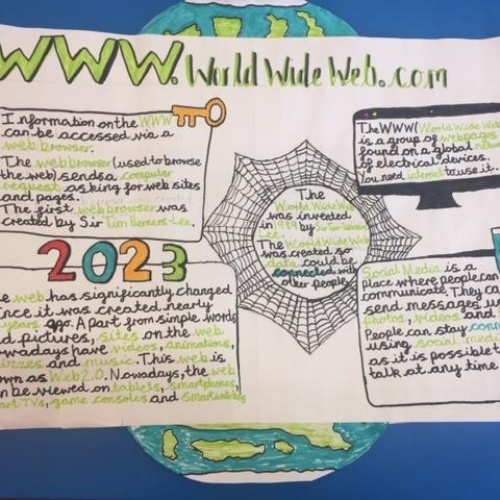 WWW. World Wide Web.com
Information on the WWW
can be accessed via a
web browser.
The web browser (used to browse
the web) sends a computer
request asking for web sites
and pages.
The first web browser was
created by Sir Tim Berners-Lee.
The WWW (World Wide Web)
is a group of webpages
found on a global
of electrical devices.
You need internet to use it.
The
World Wide Web
was invented
in 1989 by Sir Tim Berners
Lee.
The World Wide Web
was created so
data could be
connected with
other people.
2023
e web has significantly changed
ince it was created nearly
years ago. Apart from simple words
d pictures, sites on the web
owadays have videos, animations,
izzes and music. This web is
own as Web 2.0. Nowadays, the web
n be viewed on tablets, smartphones,
art TVs, game consoles and smartwatches
Social Media is a
place where people can
communicate. They can
send messages,
photos, videos and
People can stay
using social media
as it is possible t
talk at any time